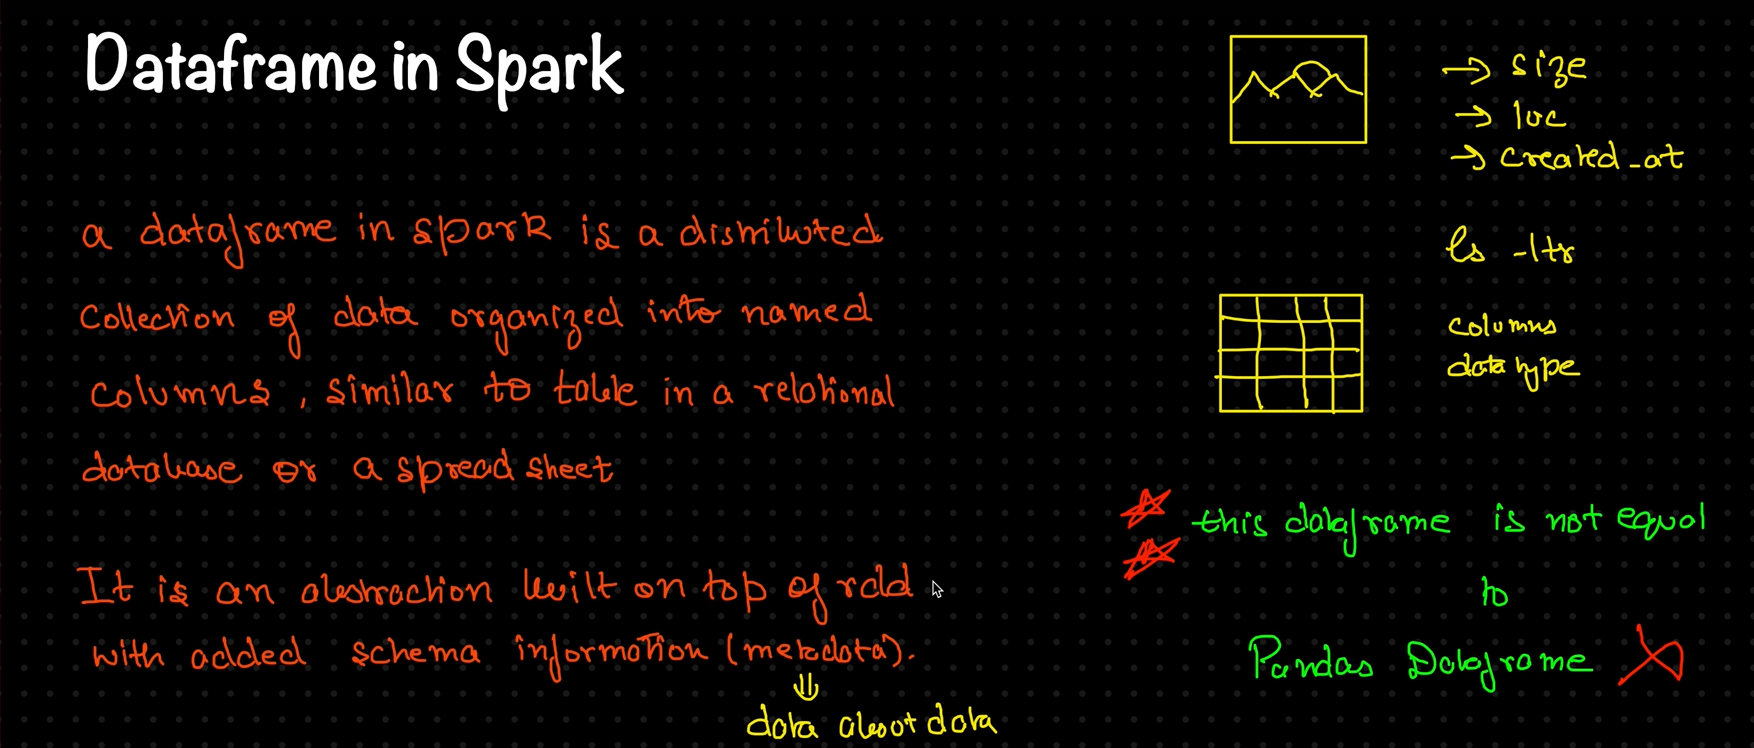 Dataframe in Spark
a dataframe in spark is a distributed
collection of data organized into named
columns, similar to table in a relational
database or a spread sheet
It is an abstraction built on top of rdd
with added schema information (metadata).
⇓
data about data
→ size
→ loc
→ created_at
ls -ltr
columns
data type
this dataframe is not equal
to
Pandas Dataframe